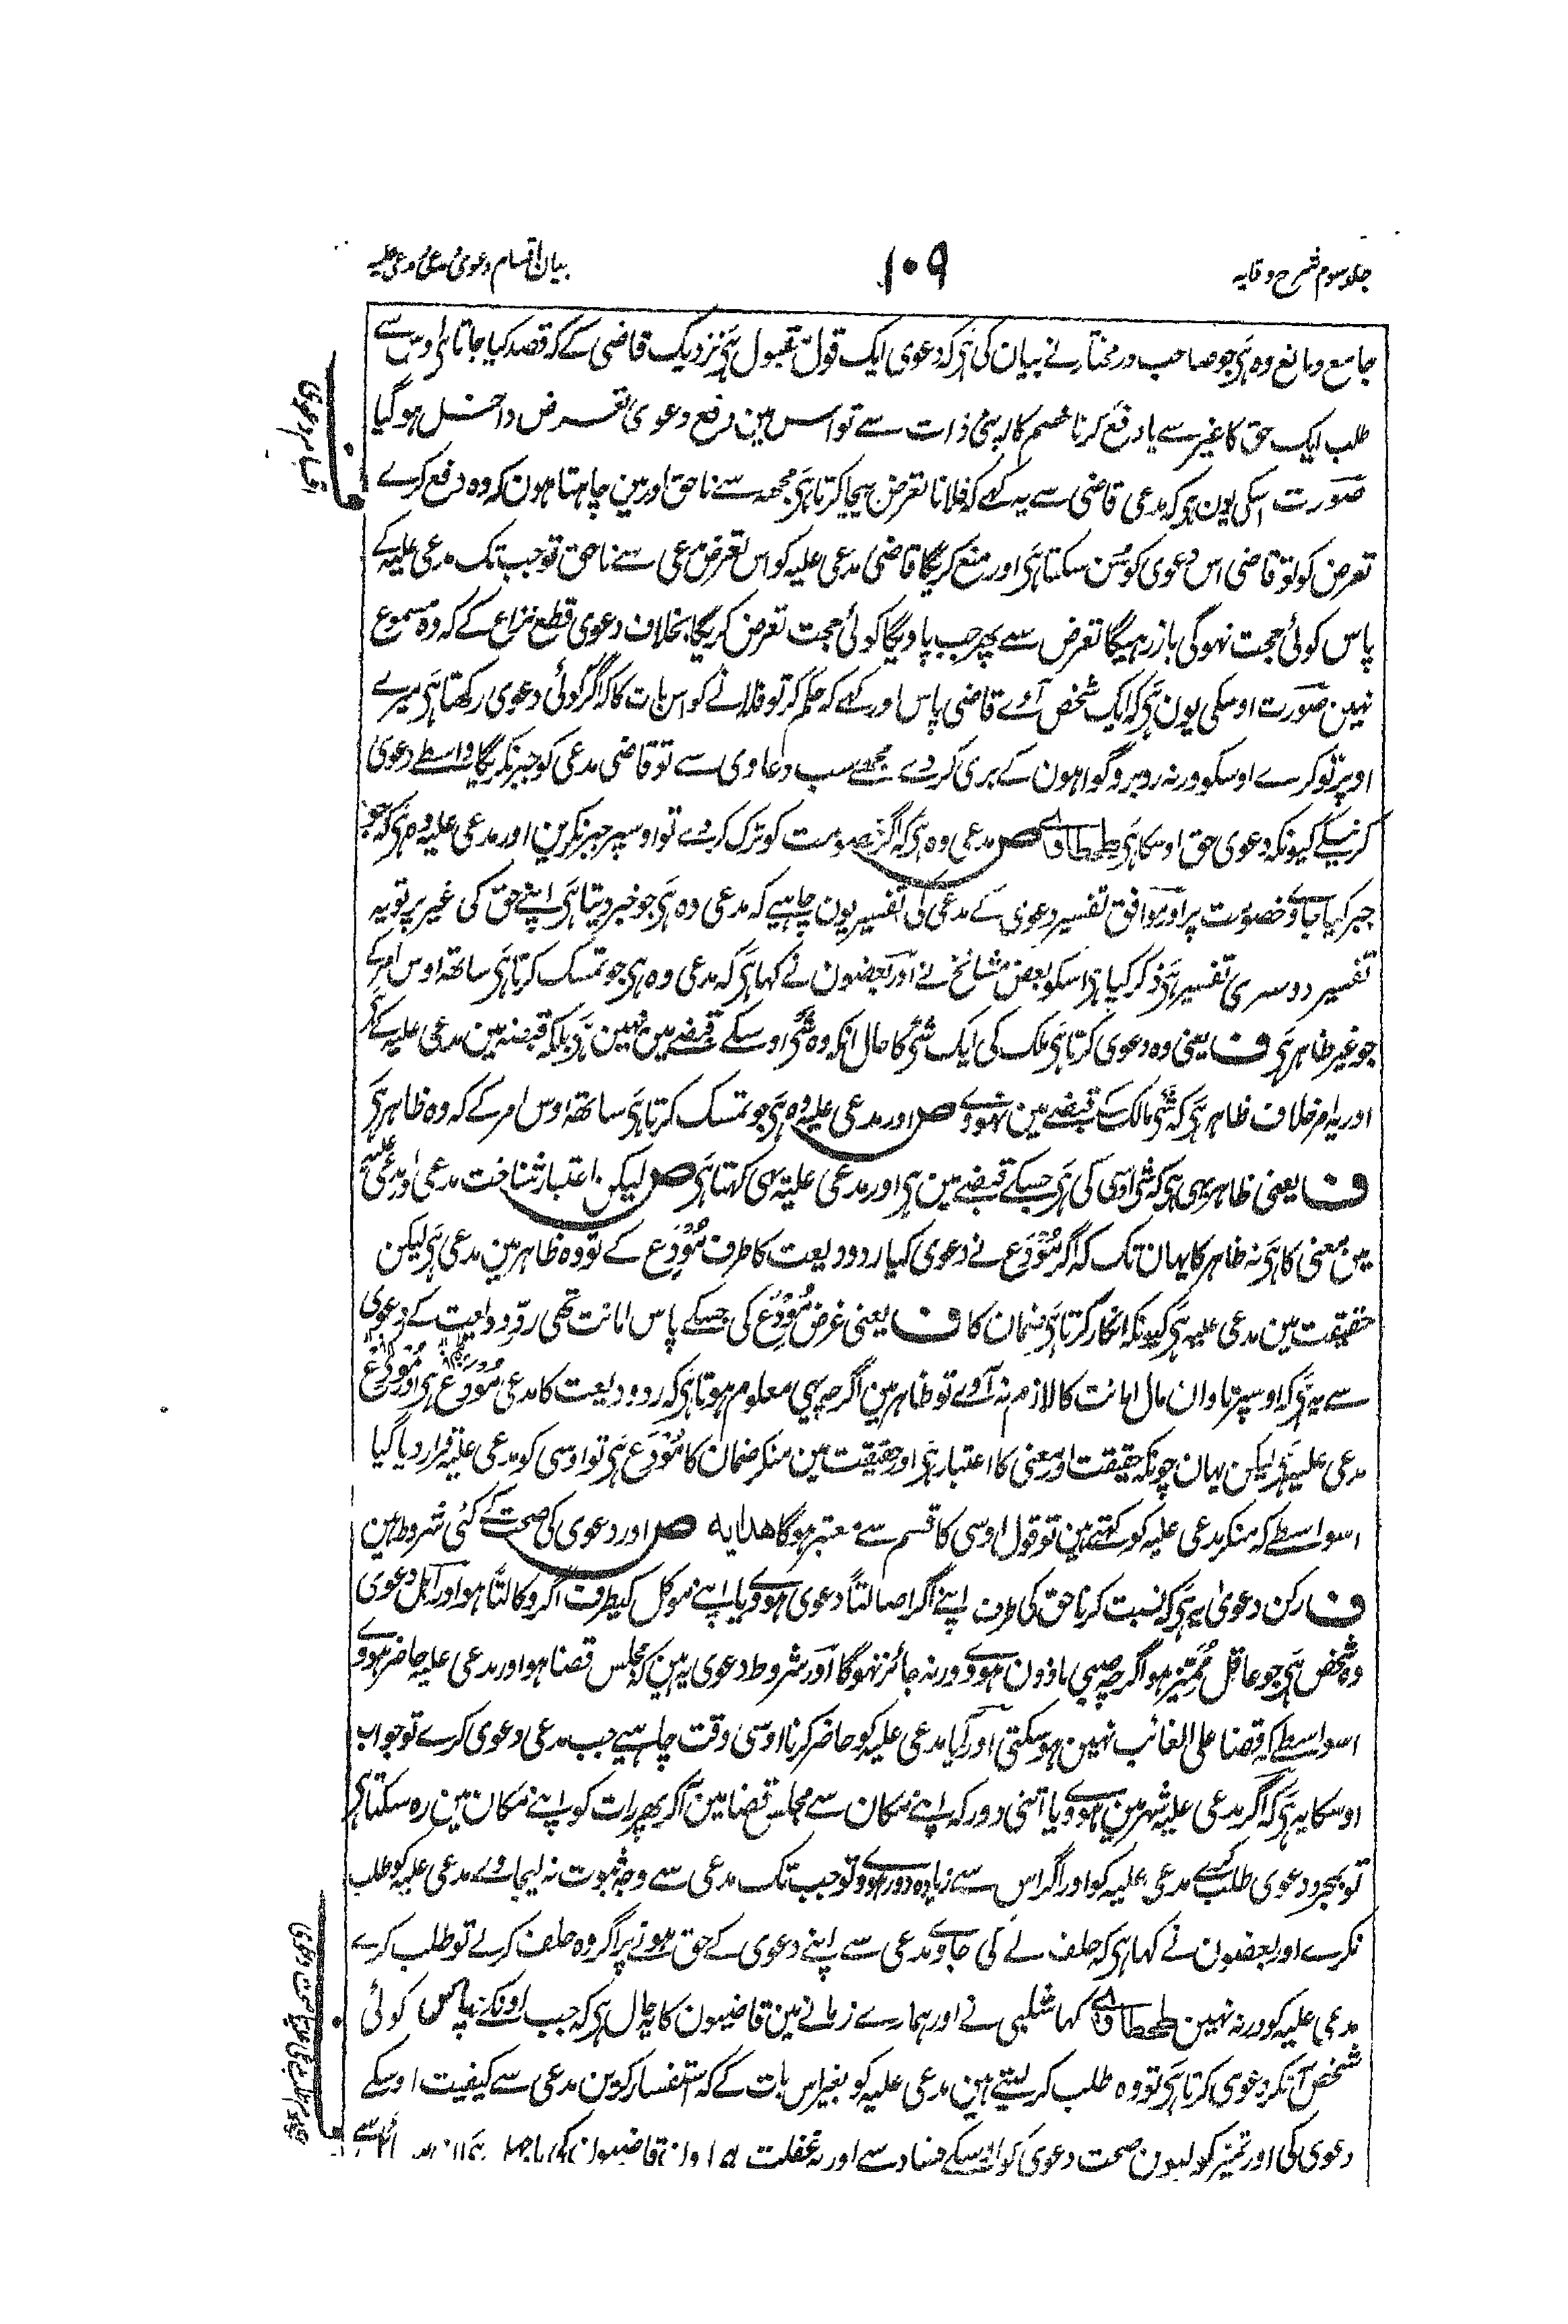 جلد سوم شرح وقایہ
۱۰۹
بیان اقسام دعویٰ مدعی و مدعی علیہ
جامع ومانع وہ ہی جو صاحب در مختار نے بیان کی ہی کہ دعوی ایک قول مقبول ہی نزدیک قاضی کے کہ قصد کیا جاتا ہی اوس سے
طلب ایک حق کا غیر سے یا دفع کرنا خصم کا اپنی ذات سے تو اس مین دفع دعوی تعرض داخل ہو گیا
صورت اسکی یون ہی کہ مدعی قاضی سے یہ کہے کہ فلانا تعرض بیجا کرتا ہی مجھ سے ناحق اور مین چاہتا ہون کہ وہ دفع کرے
تعرض کو تو قاضی اس دعوی کو سُن سکتا ہی اور منع کریگا قاضی مدعی علیہ کو اس تعرض مدعی سے ناحق تو جب تک مدعی علیہ کے
پاس کوئی حجت نہوگی باز رہیگا تعرض سے پھر جب پاویگا کوئی حجت تعرض کریگا بخلاف دعوی قطع نزاع کے کہ وہ مسموع
نہین صورت اوسکی یون ہی کہ ایک شخص آوے قاضی پاس اور کہے کہ حکم کر تو فلانے کو اس بات کا کہ اگر کوئی دعوی رکھتا ہی میرے
اوپر تو کرے اوسکو ورنہ روبرو گواہون کے بری کر دے مجھے سب دعاوی سے تو قاضی مدعی کو جبر نکریگا واسطے دعویٰ
کرنیکے کیونکہ دعوی حق اوسکا ہی طحطاوی ص مدعی وہ ہی کہ اگر خصومت کو ترک کر دے تو اوسپر جبر نکرین اور مدعی علیہ وہ ہی کہ جو
جبر کیا جاوے خصومت پر اور موافق تفسیر دعوی کے مدعی کی تفسیر یون چاہیے کہ مدعی وہ ہی جو خبر دیتا ہی اپنے حق کی غیر پر تو یہ
تفسیر دوسری تفسیر ہی ذکر کیا ہی اسکو بعض مشائخ نے اور بعضون نے کہا ہی کہ مدعی وہ ہی جو تمسک کرتا ہی ساتھ اوس امر کے
جو غیر ظاہر ہی ف یعنی وہ دعوی کرتا ہی ملک کی ایک شئ کا حال انکہ وہ شئ اوسکے قبضے مین نہین ہی بلکہ قبضہ مین مدعی علیہ کے ہی
اور یہ امر خلاف ظاہر ہی کہ شئ مالک کے قبضے مین نہووے ص اور مدعی علیہ وہ ہی جو تمسک کرتا ہی ساتھ اوس امر کے کہ وہ ظاہر ہی
ف یعنی ظاہر یہی ہی کہ شئ اوسی کی ہی جسکے قبضے مین ہی اور مدعی علیہ یہی کہتا ہی ص لیکن اعتبار شناخت مدعی و مدعی علیہ
مین معنی کا ہی نہ ظاہر کا یہان تک کہ اگر مُوْدَع نے دعوی کیا رد ودیعت کا طرف مُوْدِع کے تو وہ ظاہر مین مدعی ہی لیکن
حقیقت مین مدعی علیہ ہی کیونکہ انکار کرتا ہی ضمان کا ف یعنی غرض مُوْدَع کی جسکے پاس امانت تھی ردِّ ودیعت کے دعوی
سے یہ ہی کہ اوسپر تاوان مال امانت کا لازم نہ آوے تو ظاہر مین اگرچہ یہی معلوم ہوتا ہی کہ رد ودیعت کا مدعی مُوْدَع ہی اور مُوْدِع
مدعی علیہ ہی لیکن یہان چونکہ حقیقت اور معنی کا اعتبار ہی اور حقیقت مین منکر ضمان کا مُوْدَع ہی تو اوسی کو مدعی علیہ قرار دیا گیا
اسواسطے کہ منکر مدعی علیہ کو کہتے ہین تو قول اوسی کا قسم سے معتبر ہوگا ھدایہ ص اور دعوی کی صحت کے کئی شروط ہین
ف رکن دعویٰ یہ ہی کہ نسبت کرنا حق کی طرف اپنے اگر اصالتًا دعوی ہووے یا اپنے موکل کیطرف اگر وکالتًا ہو اور اہل دعوی
وہ شخص ہی جو عاقل مُمَیِّز ہو اگرچہ صبی ماذون ہووے ورنہ جائز نہوگا اور شروط دعوی یہ ہین کہ مجلس قضا ہو اور مدعی علیہ حاضر ہووے
اسواسطے کہ قضا علی الغائب نہین ہو سکتی اور آیا مدعی علیہ کو حاضر کرنا اوسی وقت چاہیے جب مدعی دعوی کرے تو جواب
اوسکا یہ ہی کہ اگر مدعی علیہ شہر مین ہووے یا اتنی دور کہ اپنے مکان سے مجلس قضا مین آکر پھر رات کو اپنے مکان مین رہ سکتا ہی
تو بمجرد دعوی طلب کرے مدعی علیہ کو اور اگر اس سے زیادہ دور ہووے تو جب تک مدعی سے وجہ ثبوت نہ لیجاوے مدعی علیہ کو طلب
نکرے اور بعضون نے کہا ہی کہ حلف لے لی جاوے مدعی سے اپنے دعوی کے حق ہونے پر اگر وہ حلف کرلے تو طلب کرے
مدعی علیہ کو ورنہ نہین طحطاوی کہا شلبی نے اور ہمارے زمانے مین قاضیون کا یہ حال ہی کہ جب اونکے پاس کوئی
شخص آنکر دعوی کرتا ہی تو وہ طلب کر لیتے ہین مدعی علیہ کو بغیر اس بات کے کہ استفسار کرین مدعی سے کیفیت اوسکے
دعوی کی اور تمیز کر لیون صحت دعوی کو اوسکے فساد سے اور یہ غفلت